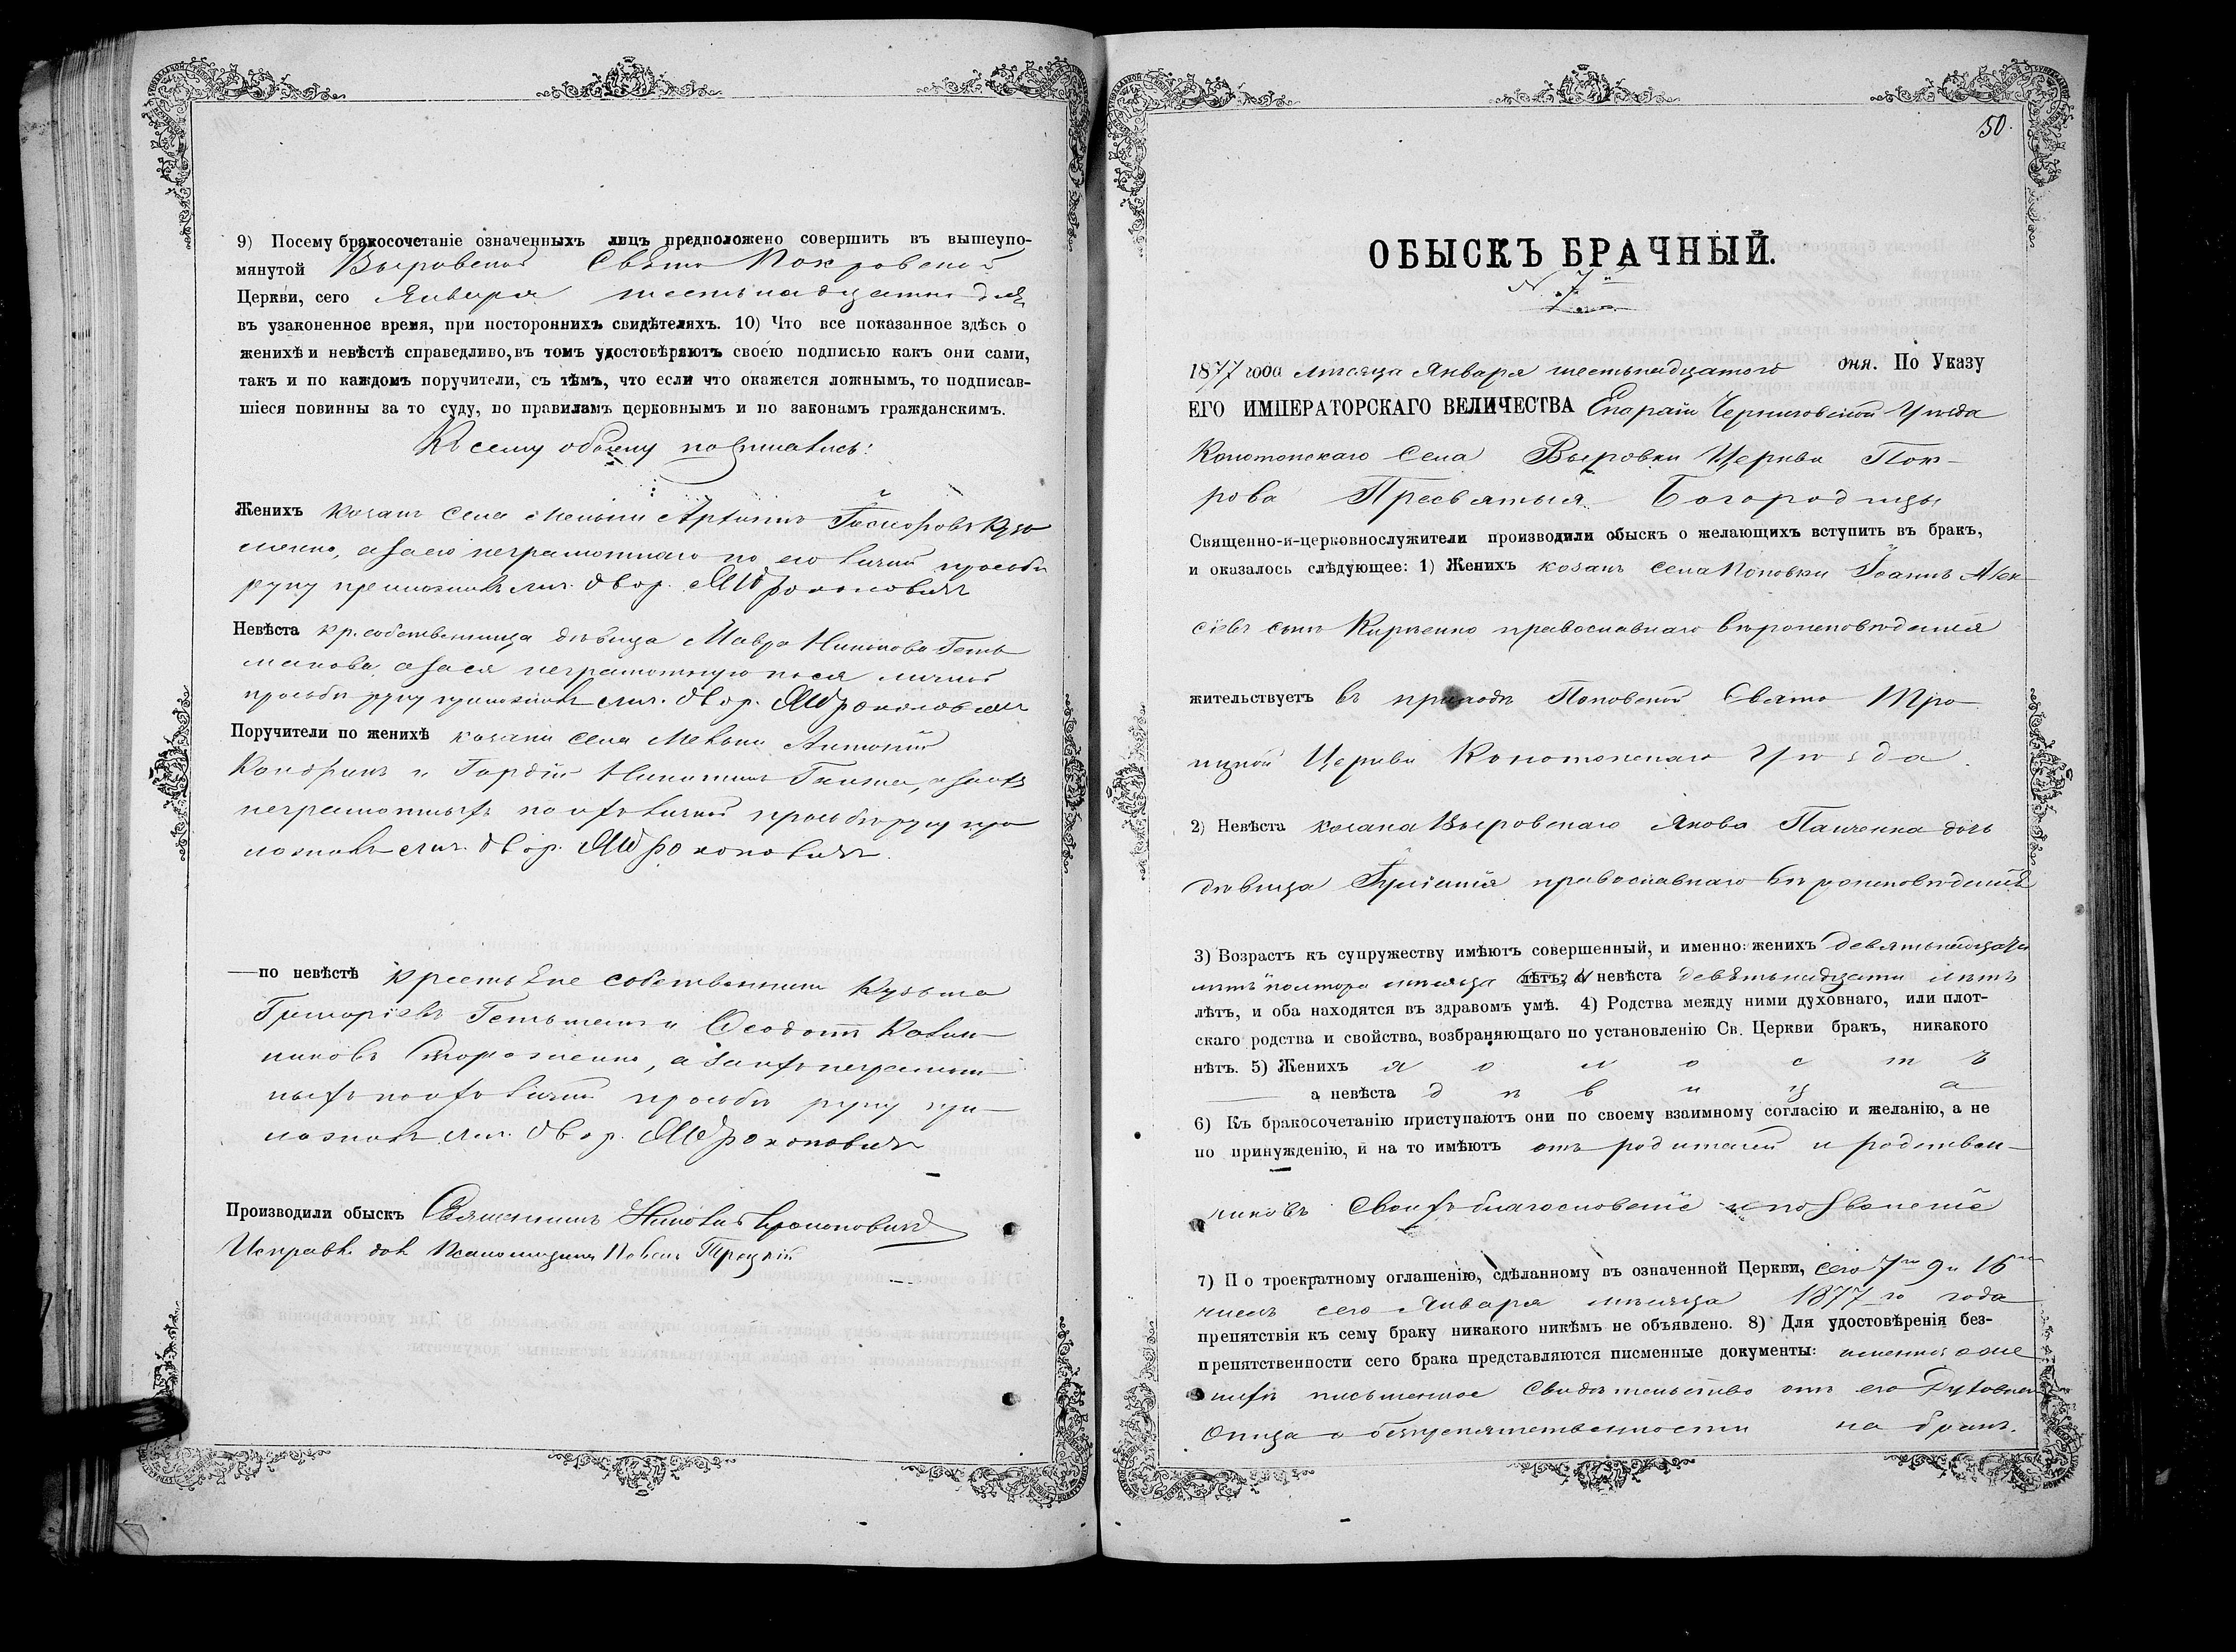 9) Посему бракосочетаніе означенныхъ лицъ предположено совершить въ вышеупо-
мянутой Выровской Свято Покровской
Церкви, сего Января шестьнадцатаго дня
въ узаконенное время, при постороннихъ свидѣтеляхъ. 10) Что все показанное здѣсь о
женихѣ и невѣстѣ справедливо, въ томъ удостовѣряютъ своею подписью какъ они сами,
такъ и по каждомъ поручители, съ тѣмъ, что если что окажется ложнымъ, то подписав-
шіеся повинны за то суду, по правиламъ церковнымъ и по законамъ гражданскимъ.
Къ сему обыску подписались:
Женихъ козакъ села Мельни
неграмотнаго по его личной просьбѣ
руку приложилъ двор. Прокоповичъ
Невѣста кр. собственница дѣвица Мавра Геть
манова, а за ея неграмотную по ея личной
просьбѣ руку приложилъ двор. Прокоповичъ
Поручители по женихѣ козаки села Мельни Антоній
Кондратъ и Гордій Никитинъ
неграмотныхъ по ихъ личной просьбѣ руку при
ложилъ двор. Прокоповичъ.
— по невѣстѣ Крестьяне собственники Кузьма
Григоріевъ Гетьманъ и Ѳеодотъ
Стороженко, а за ихъ неграмот
ныхъ по ихъ личной просьбѣ руку при-
ложилъ двор. Прокоповичъ
Производили обыскъ Священникъ Николай Прокоповичъ
Исправ. дол. Псаломщика Павелъ Троцкій
50.
ОБЫСКЪ БРАЧНЫЙ.
N. 7й
1877 года мѣсяца Января шестьнадцатого дня. По Указу
ЕГО ИМПЕРАТОРСКАГО ВЕЛИЧЕСТВА Епархіи Черниговской Уѣзда
Конотопскаго Села Выровки Церкви Пок-
рова Пресвятыя Богородицы
Священно-и-церковнослужители производили обыскъ о желающихъ вступить въ бракъ,
и оказалось слѣдующее: 1) Женихъ козакъ села Поповки Іоаннъ Алек
сіевъ сынъ Кириенко православнаго вѣроисповѣданія
жительствуетъ въ приходѣ Поповской Свято Тро-
ицкой Церкви Конотопскаго Уѣзда.
2) Невѣста козака Выровскаго Якова Панченка дочь
дѣвица православнаго вѣроисповѣданія
3) Возрастъ къ супружеству имѣютъ совершенный, и именно: женихъ девятьнадцать
лѣтъ полтора мѣсяца лѣтъ, а невѣста девѣтьнадцати лѣтъ
лѣтъ, и оба находятся въ здравомъ умѣ. 4) Родства между ними духовнаго, или плот-
скаго родства и свойства, возбраняющаго по установленію Св. Церкви бракъ, никакого
нѣтъ. 5) Женихъ холостъ
а невѣста дѣвица
6) Къ бракосочетанію приступаютъ они по своему взаимному согласію и желанію, а не
по принужденію, и на то имѣютъ отъ родителей и родствен-
никовъ своихъ благословеніе и позволеніе
7) По троекратному оглашенію, сдѣланному въ означенной Церкви, сего 7го 9 и 16го
чиселъ сего Января мѣсяца 1877-го года
препятствія къ сему браку никакого никѣмъ не объявлено. 8) Для удостовѣренія без-
препятственности сего брака представляются писменные документы: именно о же
нихѣ письменное свидѣтельство отъ его Духовнаго
Отца о безпрепятственности на бракъ.